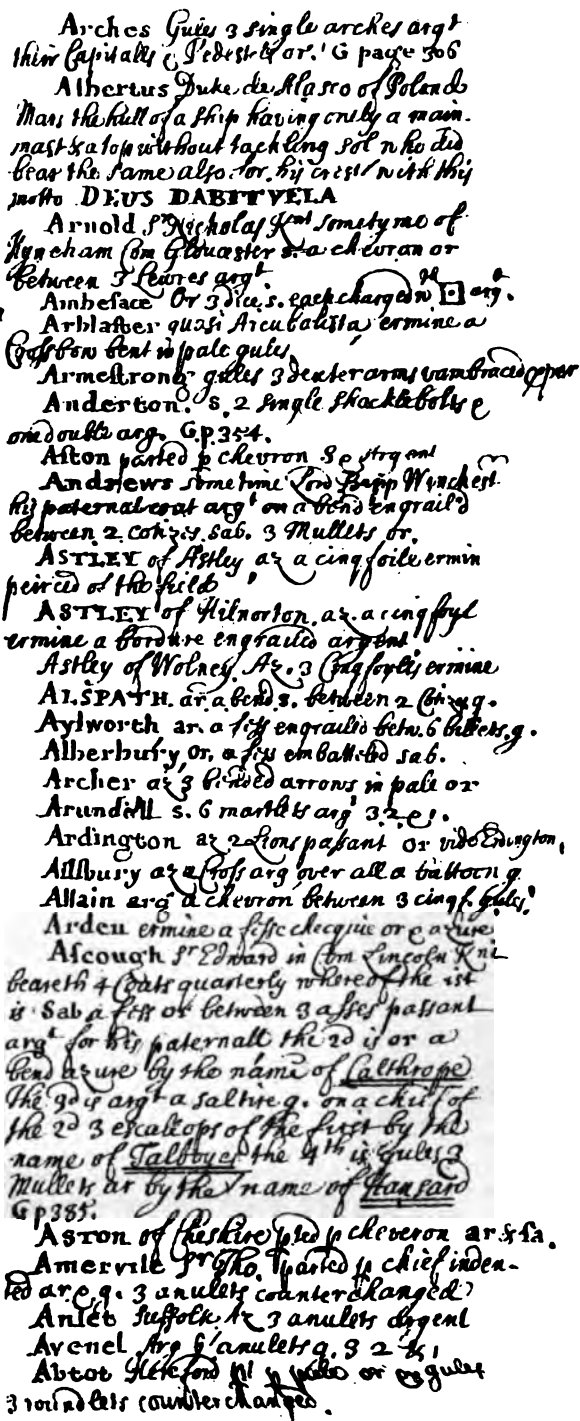 Arches Gules 3 single arches argt
their Capitalls & Pedestils or. G page 306
Albertus Duke de Alasco of Poland
Mars the hull of a ship having onely a main
mast & a top without tackling sol who did
bear the same also for his crest with this
motto DEUS DABIT VELA
Arnold Sr Nicholas Knt sometyme of
Hyneham Com Gloucester s. a chevron or
between 3 Lewres argt.
Ambeface Or 3 dice s. each charged arg.
Arblaster quasi Arcubalista ermine a
Crossbow bent in pale gules
Armestrong gules 3 dexter arms vambraced & pper
Anderton. s. 2 single shackbolts &
one double arg. G.p. 354.
Aston parted p chevron S & Argent
Andrews sometime Lord Bpp Winchest.
his paternal coat argt on a bend engrail'd
between 2 cotizes sab. 3 Mullets or.
ASTLEY of Astley az a cinqfoile ermin
peirced of the field
ASTLEY of Hilnorton. az. a cinqfoyl
ermine a bordure engrailed argent
Astley of Wolney. Az. 3 Cinqfoyles ermine
ALSPATH. ar a bend s. between 2 Cotiz. g.
Aylworth ar. a fess engrailed betw. 6 billets. g.
Alberbury, Or, a fess embattled sab.
Archer az 3 bended arrows in pale or
Arundell s. 6 martlets arg 3.2.& 1.
Ardington az 2 Lions passant Or vide Erdington.
Allsbury az a Cross arg over all a battoon g
Allain arg a chevron between 3 cinqf. gules
Arden ermine a fesse checquie or & azure
Ascough Sr Edward in Com Lincoln Knt
beareth 4 Coats quarterly whereof the 1st
is Sab a fess or between 3 asses passant
argt for his paternall the 2d is or a
bend azure by the name of Calthrope
the 3d is argt a saltire g. on a chief of
the 2d 3 escallops of the first by the
name of Talboyes the 4th is gules 3
Mullets ar by the name of Hansard
G p 385.
ASTON of Cheshire pted p cheveron ar & sa.
Amervile Sr Tho. parted p chief inden-
ted ar & g. 3 anulets counterchanged
Anlet Suffolk Az 3 anulets argent
Avenel Arg 6 anulets g. 3 2 & 1
Abtot Hereford pt p pale or & gules
3 roundlets counterchanged.